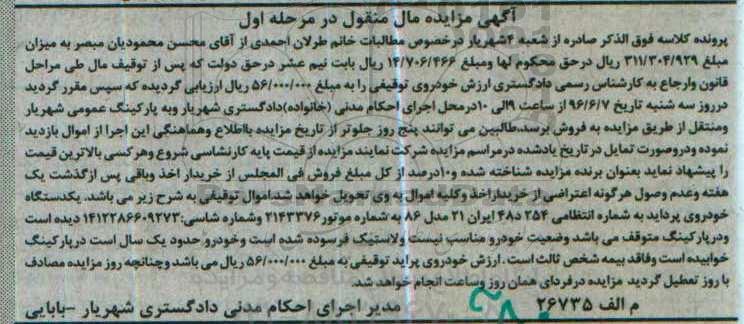 آگهی مزایده مال منقول در مرحله اول
پرونده کلاسه فوق الذکر صادره از شعبه ۴شهریار درخصوص مطالبات خانم طرلان احمدی از آقای محسن محمودیان مبصر به میزان
مبلغ ۳۱۱/۳۰۴/۹۲۹ ریال درحق محکوم لها ومبلغ ۱۴/۷۰۶/۴۶۶ ریال بابت نیم عشر درحق دولت که پس از توقیف مال طی مراحل
قانون وارجاع به کارشناس رسمی دادگستری ارزش خودروی توقیفی را به مبلغ ۵۶/۰۰۰/۰۰۰ ریال ارزیابی گردیده که سپس مقرر گردید
درروز سه شنبه تاریخ ۹۶/۶/۷ از ساعت ۹الی ۱۰درمحل اجرای احکام مدنی (خانواده)دادگستری شهریار وبه پارکینگ عمومی شهریار
ومنتقل از طریق مزایده به فروش برسد.طالبین می توانند پنج روز جلوتر از تاریخ مزایده بااطلاع وهماهنگی این اجرا از اموال بازدید
نموده ودروصورت تمایل در تاریخ یادشده درمراسم مزایده شرکت نمایند مزایده از قیمت پایه کارنشاسی شروع وهرکسی بالاترین قیمت
را پیشنهاد نماید بعنوان برنده مزایده شناخته شده و۱۰درصد از کل مبلغ فروش فی المجلس از خریدار اخذ وباقی پس ازگذشت یک
هفته وعدم وصول هرگونه اعتراضی از خریداراخذ وکلیه اموال به وی تحویل خواهد شد.اموال توقیفی به شرح زیر می باشد. یکدستگاه
خودروی پرداید به شماره انتظامی ۲۵۴ د۴۸ ایران ۲۱ مدل ۸۶ به شماره موتور ۲۱۴۳۳۷۶ وشماره شاسی:۱۴۱۲۲۸۶۶۰۹۲۷۳ دیده است
ودرپارکینگ متوقف می باشد وضعیت خودرو مناسب نیست ولاستیک فرسوده شده است وخودرو حدود یک سال است درپارکینگ
خوابیده است وفاقد بیمه شخص ثالث است. ارزش خودروی پراید توقیفی به مبلغ ۵۶/۰۰۰/۰۰۰ ریال می باشد وچنانچه روز مزایده مصادف
با روز تعطیل گردید مزایده درفردای همان روز وساعت انجام خواهد شد.
م الف ۲۶۷۳۵ مدیر اجرای احکام مدنی دادگستری شهریار -بابایی